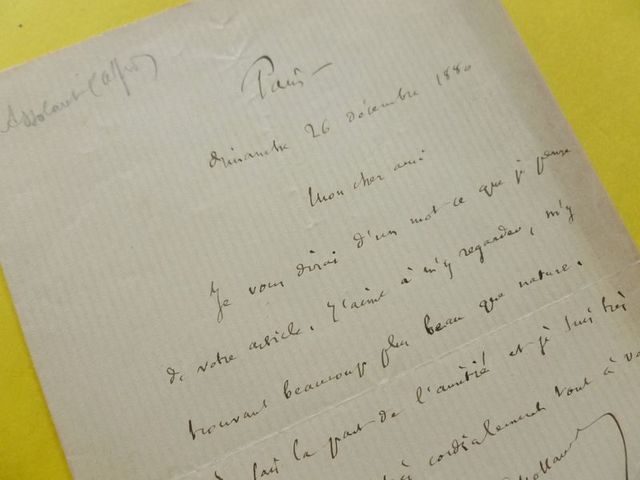 Assolant (Alfred)
Paris
dimanche 26 décembre 1880
Mon cher ami
Je vous dirai d'un mot ce que je pense
de votre article. J'aime à m'y regarder, m'y
trouvant beaucoup plus beau que nature.
fait la part de l'amitié et je suis très
cordialement tout à vo